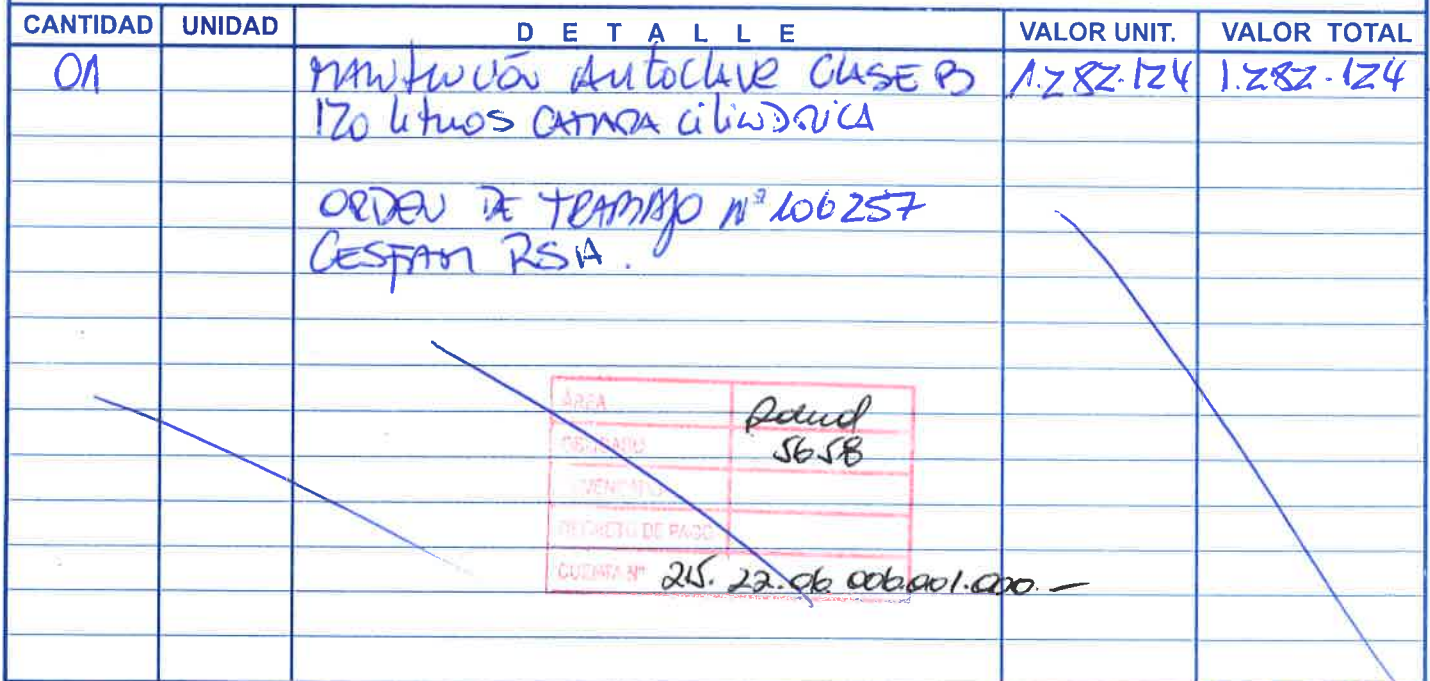 CANTIDAD UNIDAD DETALLE VALOR UNIT. VALOR TOTAL
01 MANTENCIÓN AUTOCLAVE CLASE B 1.282.124 1.282.124
120 litros CAMARA CiliNDRICA
ORDEN DE TRABAJO N° 106257
CESFAM RSA.
ÁREA Salud
OBLIGADO 5658
DEVENGADO
DECRETO DE PAGO
CUENTA N° 215.22.06.006.001.000.-